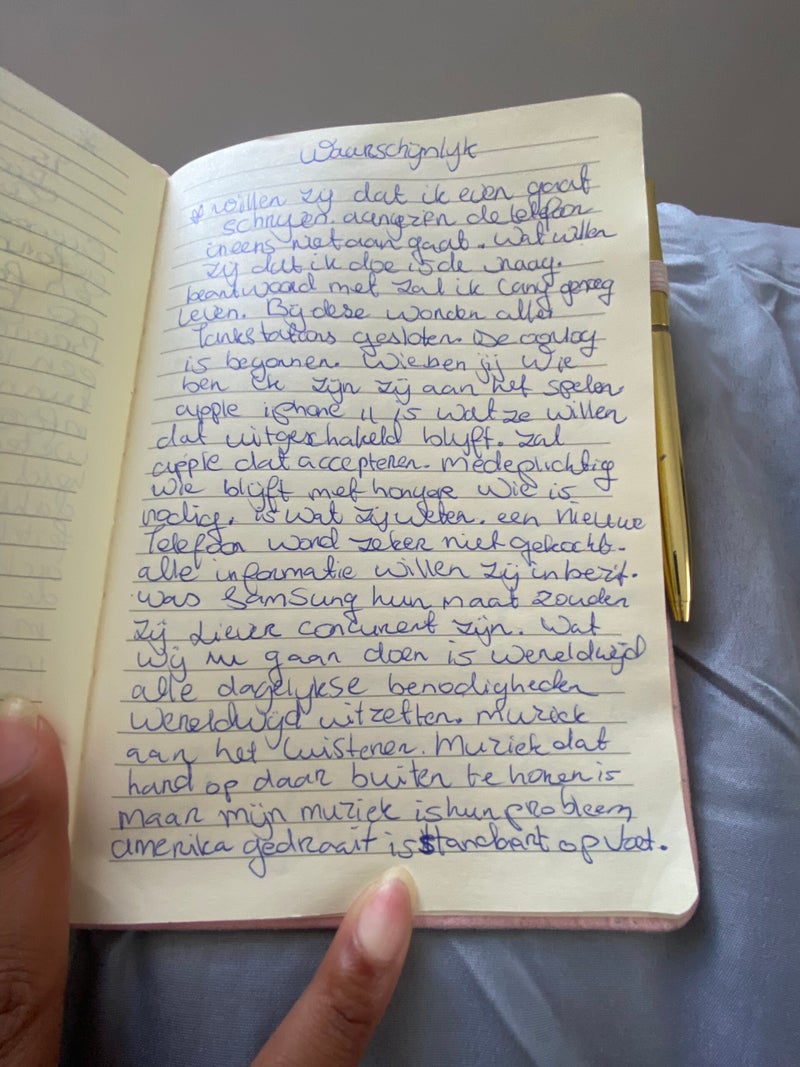 Waarschijnlyk
* willen zij dat ik even gaat
schrijven. aangezien de telefoon
ineens niet aan gaat. Wat willen
zij dat ik doe is de vraag.
beantwoord met zal ik lang genoeg
leven. Bij dese worden alle
Tankstations gesloten. De oorlog
is begonnen. Wie ben jij wie
ben ik zijn zij aan het spelen
apple iphone 11 is wat ze willen
dat uitgeschakeld blijft. zal
apple dat accepteren. medeplichtig
wie blijft met honger wie is
nodig. is wat zij weten. een nieuwe
Telefoon word zeker niet gekocht.
alle informatie willen zij in bezit.
was Samsung hun maat zouden
zij liever concurent zijn. Wat
wij nu gaan doen is wereldwijd
alle dagelykse benodigheden
wereldwijd uitzetten. muziek
aan het luisteren. Muziek dat
hard op daar buiten te horen is
maar mijn muziek is hun probleem
amerika gedraait is standbart op